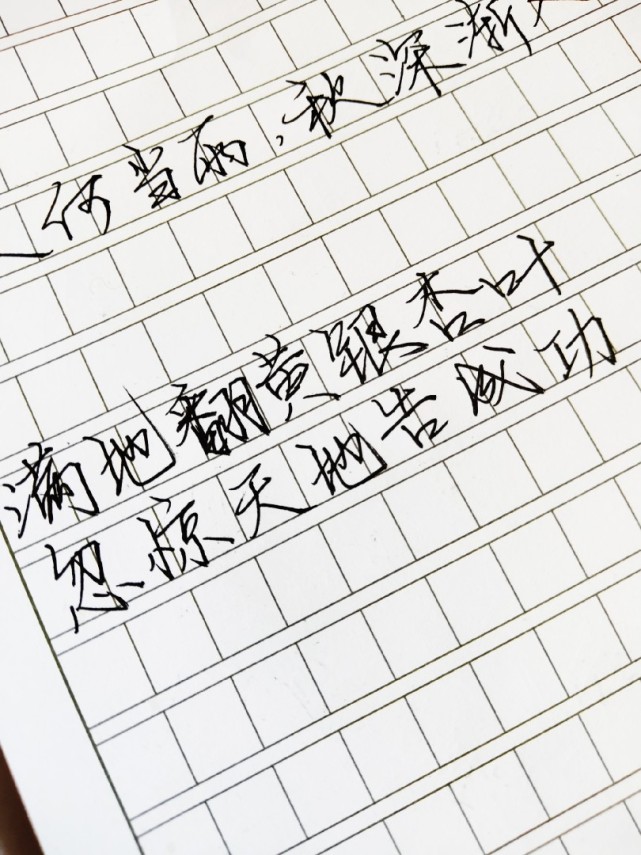 何当雨，秋深渐
满地翻黄银杏叶
忽惊天地告成功